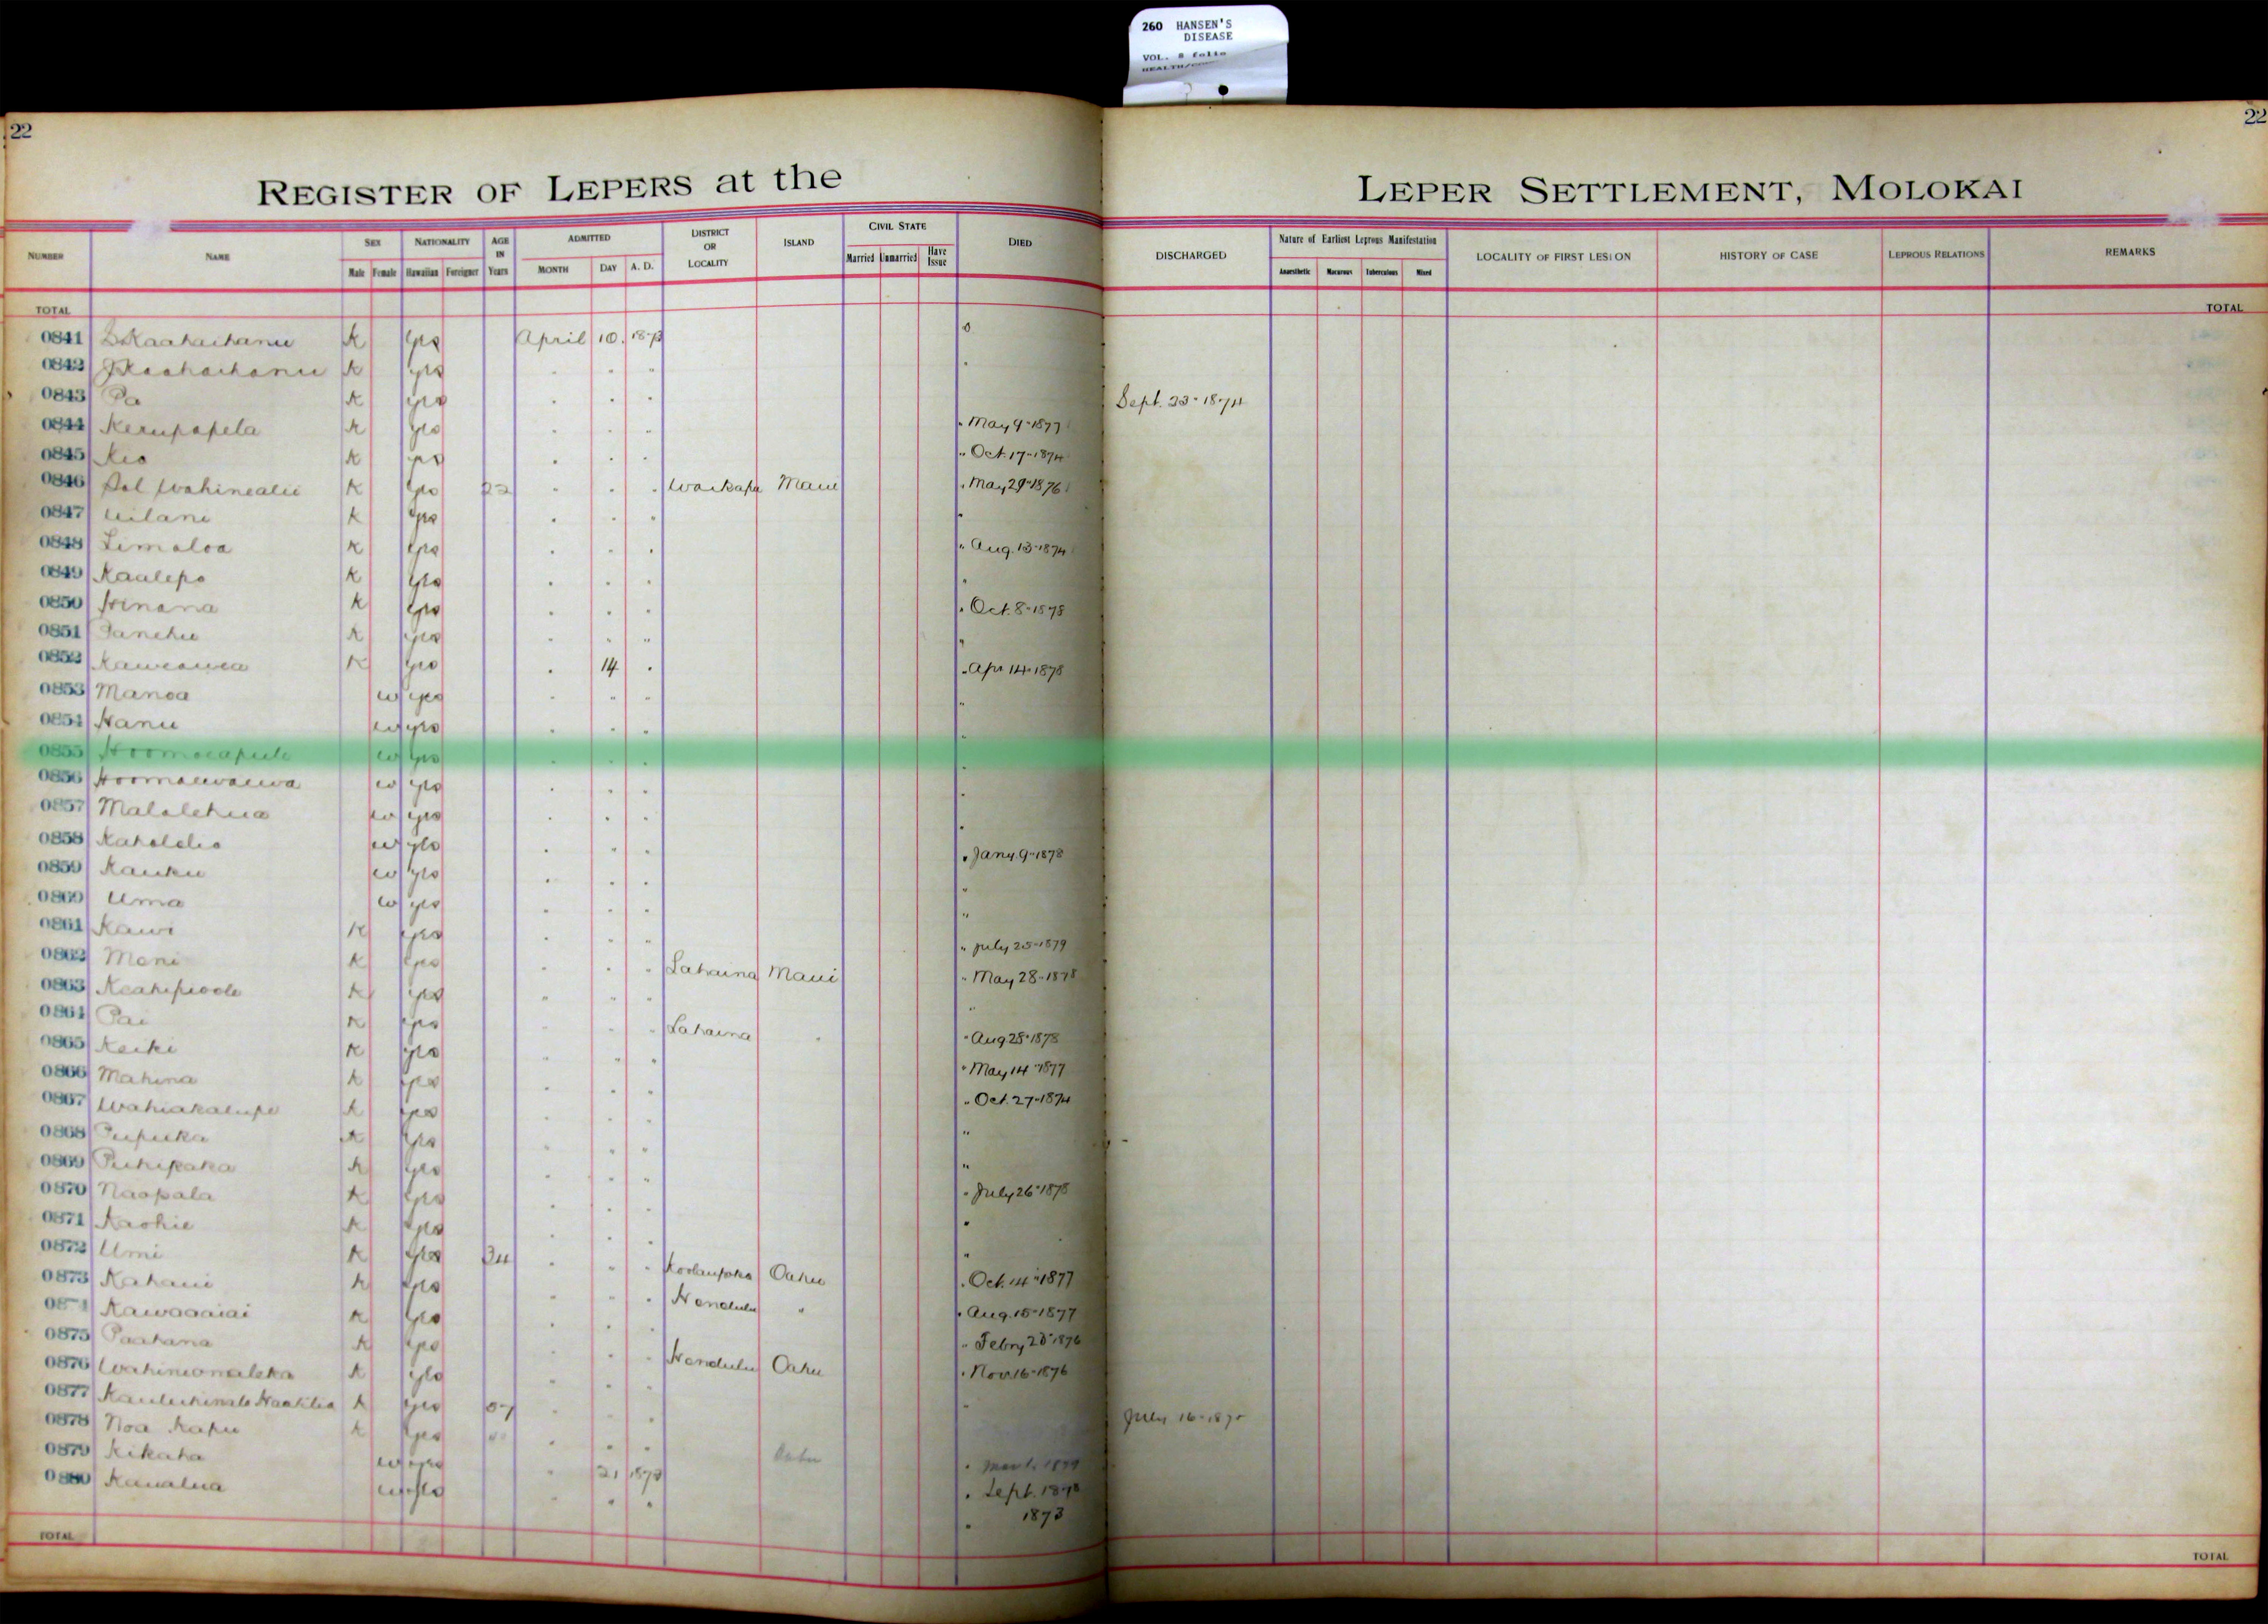 260 HANSEN'S
DISEASE
VOL. 8 folio
22
22
REGISTER OF LEPERS at the LEPER SETTLEMENT, MOLOKAI
NUMBER NAME SEX NATIONALITY AGE IN Years ADMITTED DISTRICT OR LOCALITY ISLAND CIVIL STATE DIED DISCHARGED Nature of Earliest Leprous Manifestation LOCALITY OF FIRST LESION HISTORY OF CASE LEPROUS RELATIONS REMARKS
Male Female Hawaiian Foreigner MONTH DAY A. D. Married Unmarried Have Issue Anaesthetic Macurous Tuberculous Mixed
TOTAL TOTAL
0841 K yes April 10. 1873
0842 K yes
0843 Pa K yes Sept. 23-1874
0844 K yes May 9-1877
0845 Kio K yes Oct. 17-1874
0846 K yes 22 Waikapu Maui May 29-1876
0847 Uilani K yes
0848 Limaloa K yes Aug. 13-1874
0849 Kaalepo K yes
0850 Hinana K yes Oct. 8-1878
0851 K yes
0852 Kaweawea K yes 14 Apr 14-1878
0853 Manoa w yes
0854 Hanu w yes
0855 w yes
0856 Hoomauwauwa w yes
0857 Malolehua w yes
0858 Kaholelio w yes Jany. 9-1878
0859 Kauku w yes
0860 Uma w yes
0861 Kawi K yes July 25-1879
0862 Meni K yes Lahaina Maui May 28-1878
0863 K yes
0864 Pai K yes Lahaina Aug 28-1878
0865 Keiki K yes May 14-1877
0866 Mahina K yes Oct. 27-1874
0867 Wahiakalupe K yes
0868 Pupuka K yes
0869 Puhipaka K yes July 26-1878
0870 Naopala K yes
0871 Kaohie K yes
0872 Umi K yes 34 Koolaupoko Oahu Oct. 14-1877
0873 Kahaui K yes Honolulu " Aug. 15-1877
0874 Kawaaaiai K yes Febry 28-1876
0875 Paahana K yes Honolulu Oahu Nov. 16-1876
0876 K yes
0877 K yes July 16-187
0878 Noa Kapu K yes Oahu 1879
0879 Kikaha w yes 21 1873 Sept. 1878
0880 Kanalua w yes 1873
TOTAL TOTAL